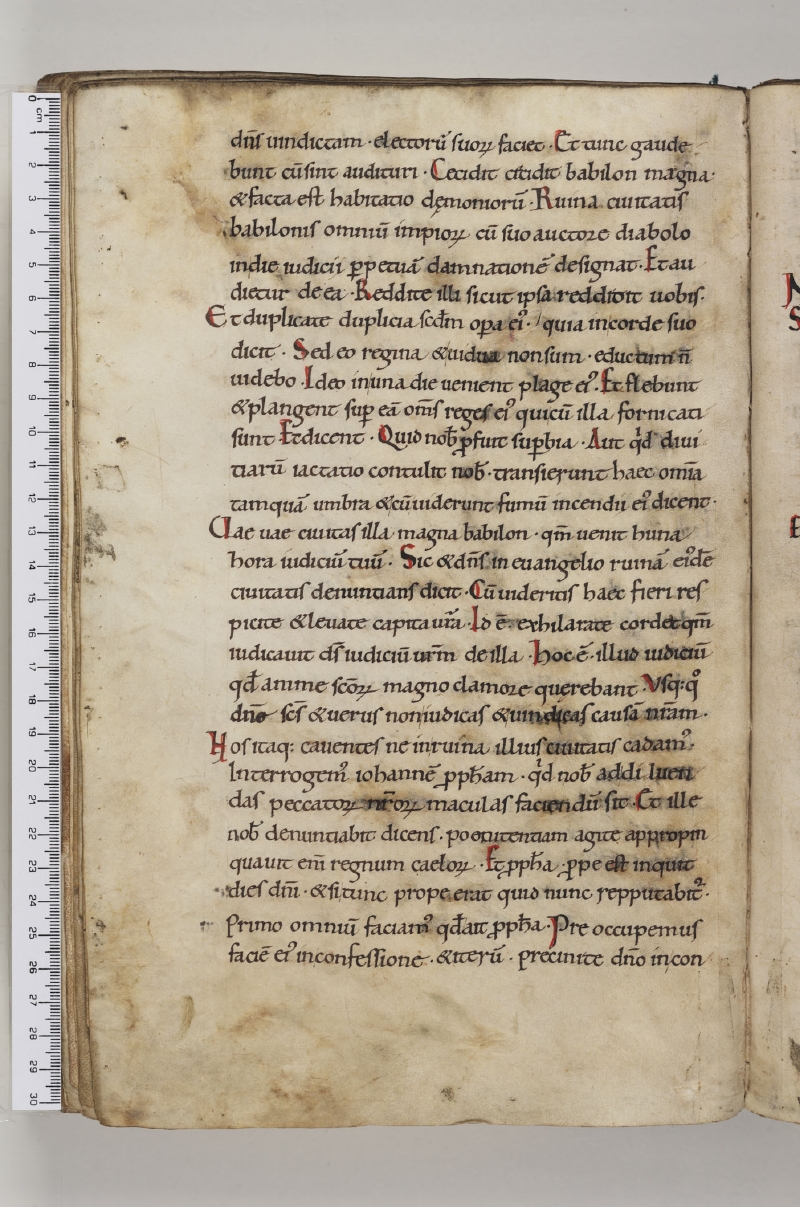 dn̄s uindictam · electorū suoꝝ faciet · Et tunc gaude
bunt cū sint audituri · Cecidit cecidit babilon magna ·
& facta est habitatio dęmoniorū · Ruina ciuitatis
babilonis omniū impioꝝ cū suo auctore diabolo
in die iudicii ꝑpetuā damnationē designat · Et au
dietur de ea · Reddite illi sicut ipsa reddidit uobis ·
Et duplicate duplicia scd̄m opa eiꝰ · quia in corde suo
dicit · Sed eo regina & uidua non sum · & luctum n̄
uidebo · Ideo in una die uenient plage eiꝰ · Et flebunt
& plangent suꝑ eā om̄s reges eiꝰ qui cū illa fornicati
sunt Et dicent · Quid nob̄ ꝓfuit suꝑbia · Aut qd̄ diui
tiarū iactatio contulit nob̄ · transierunt haec om̄ia
tamquā umbra & cū uiderunt fumū incendii eiꝰ dicent ·
Uae uae ciuitas illa magna babilon · qm̄ uenit huna
hora iudiciū tuū · Sic & dn̄s in euangelio ruinā eiꝰdē
ciuitatis denuntians dicit · Cū uideritis haec fieri res
picite & leuate capita ur̄a · Id ē · exhilarate corde · qm̄
iudicauit ds̄ iudiciū ur̄m de illa · Hoc ē · illud iudiciū
qd̄ animę sc̄oꝝ magno clamore querebant · Usq: q°
dn̄e sc̄s & uerus non iudicas & uindicas causā nr̄am ·
Nos itaq: cauentes ne in ruina illius ciuitatis cadamꝰ ·
Interrogemꝰ iohannē ꝓph̄am · qd̄ nob̄ ad diluen
das peccatoꝝ nr̄oꝝ maculas faciendū sit · Et ille
nob̄ denuntiabit dicens · poenitentiam agite appropin
quauit eni̅ regnum caeloꝝ · Et ꝓph̄a · ꝓpe est inquit
dies dn̄i · & si tunc prope erat quid nunc repputabit̄ ·
Primo omniū faciamꝰ qd̄ ait ꝓph̄a · Pre occupemus
faciē eiꝰ in confessione · & iterū · precinite dn̄o in con